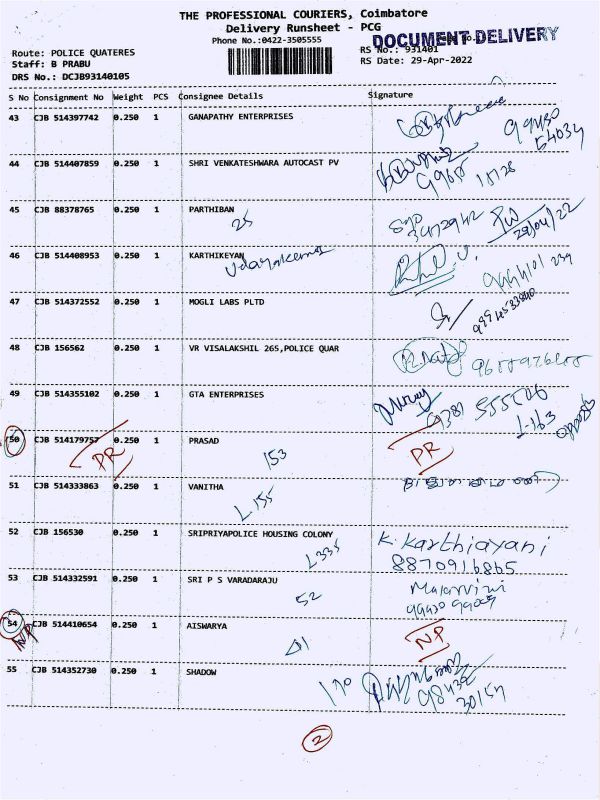 THE PROFESSIONAL COURIERS, Coimbatore
Delivery Runsheet - PCG
Phone No.:0422-3505555
DOCUMENT DELIVERY
Route: POLICE QUATERES
RS No.: 931401
Staff: B PRABU
RS Date: 29-Apr-2022
DRS No.: DCJB93140105
S No Consignment No Weight PCS Consignee Details Signature
43 CJB 514397742 0.250 1 GANAPATHY ENTERPRISES
44 CJB 514407859 0.250 1 SHRI VENKATESHWARA AUTOCAST PV
45 CJB 88378765 0.250 1 PARTHIBAN
25
29/04/22
46 CJB 514408953 0.250 1 KARTHIKEYAN
Udayakumar
47 CJB 514372552 0.250 1 MOGLI LABS PLTD
48 CJB 156562 0.250 1 VR VISALAKSHIL 265,POLICE QUAR
49 CJB 514355102 0.250 1 GTA ENTERPRISES
L-163
50 CJB 514179757 0.250 1 PRASAD
PR
153
PR
51 CJB 514333863 0.250 1 VANITHA
L.155
52 CJB 156530 0.250 1 SRIPRIYAPOLICE HOUSING COLONY
L335
K. Karthiayani
8870916865
53 CJB 514332591 0.250 1 SRI P S VARADARAJU
52
Malarvizhi
54 CJB 514410654 0.250 1 AISWARYA
NP
NP
55 CJB 514352730 0.250 1 SHADOW
170
2